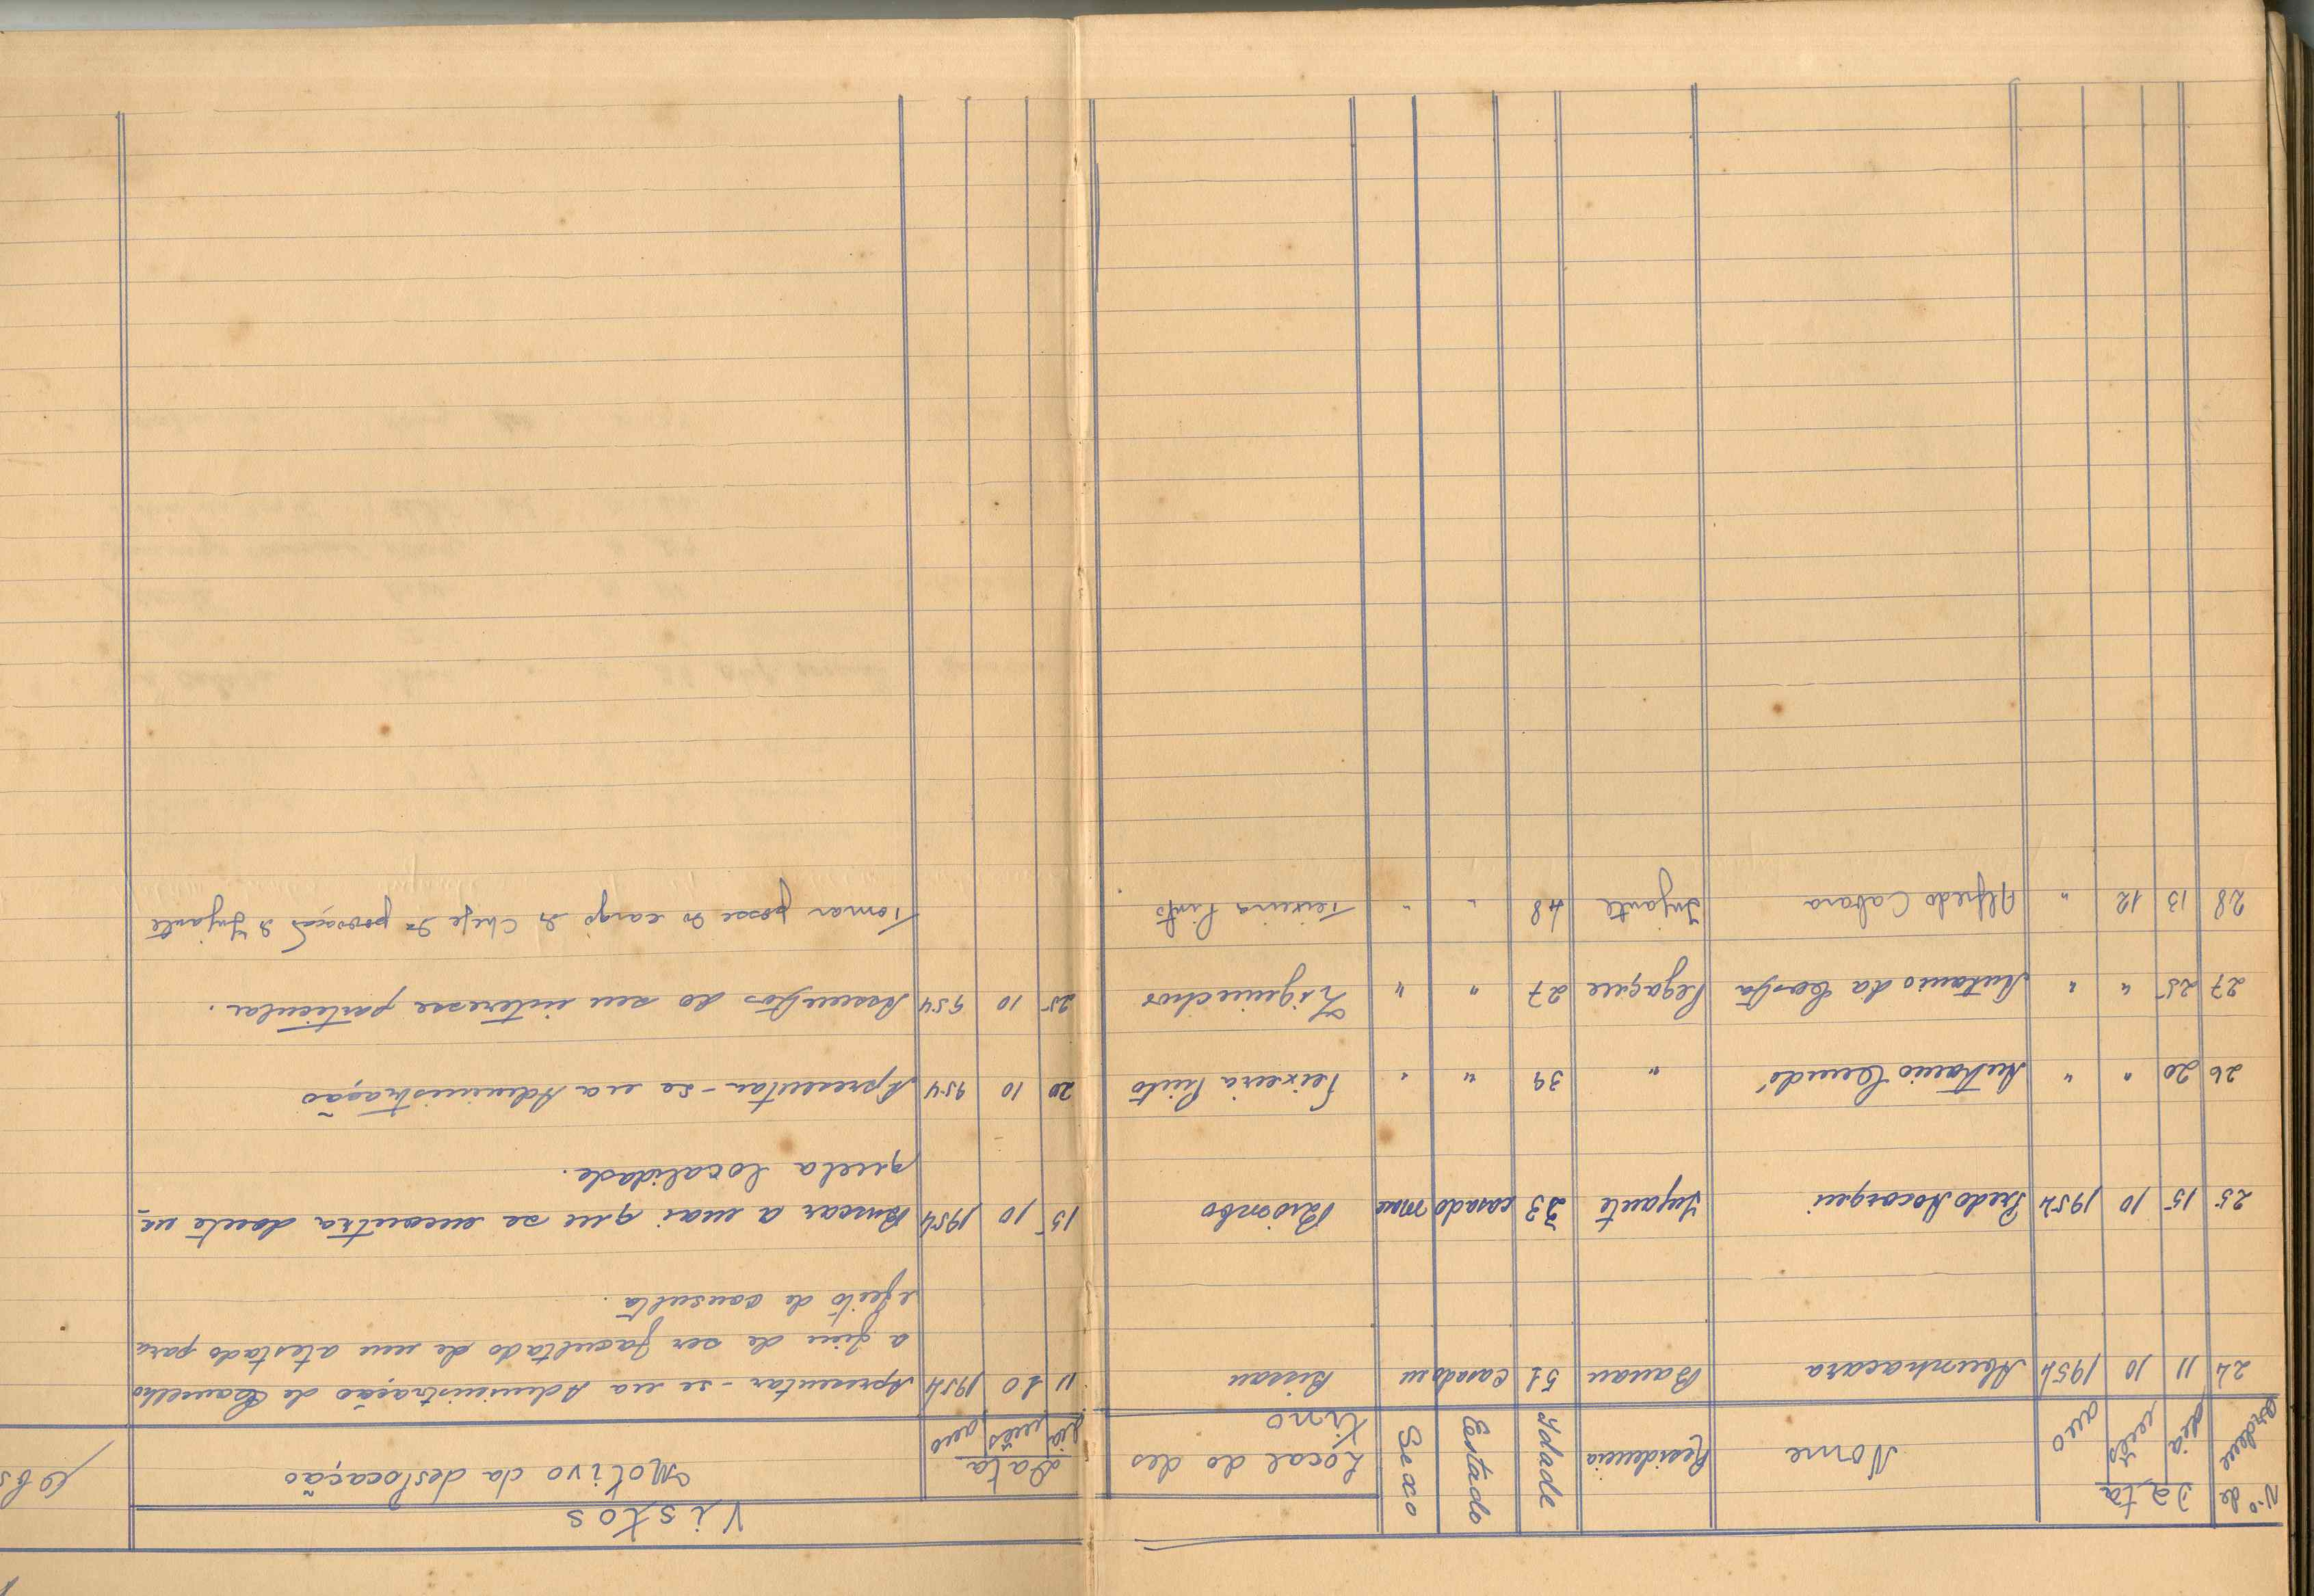 Nº de ordem | Data | Nome | Residencia | Idade | Estado | Sexo | Local do des
dia | mês | ano | tino
24 11 10 1954 Munhacara Banau 51 casado m Bissau
25 15 10 1954 Predo Nocorgui Infante 33 casado mas Biombo
26 20 " " António Cumdó " 39 " " Teixeira Pinto
27 25 " " António da Costa Pegaque 27 " " Ziguinchor
28 13 12 " Alfredo Cabara Infante 48 " " Teixeira Pinto.
Vistos
Data | Motivo da deslocação | Obs
dia | mês | ano
11 10 1954 Apresentar-se na Administração de Concelho
a fim de ser facultado de um atestado para
efeito de consulta.
15 10 1954 Buscar a mãi que se encontra doente na-
quela localidade.
20 10 954 Apresentar-se na Administração
25 10 954 Assuntos do seu interesse particular.
Tomar posse do cargo de Chefe da povoação de Infante